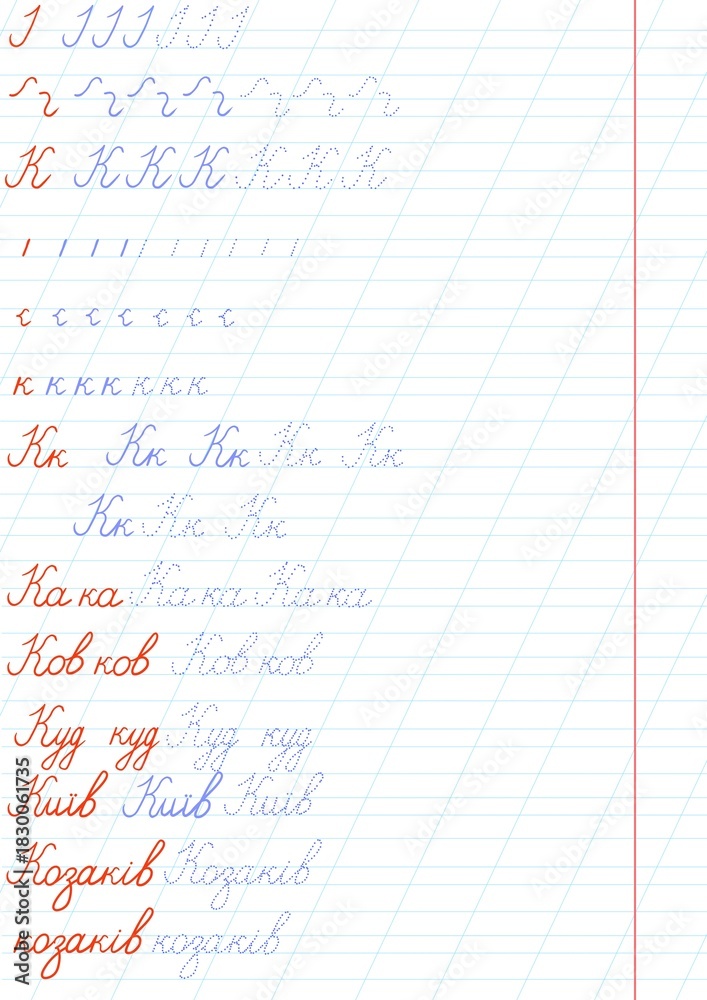 К К К К К К К
к к к к к к к
Кк Кк Кк Кк Кк
Кк Кк Кк
Ка ка Ка ка Ка ка
Ков ков Ков ков
Куд куд Куд куд
Київ Київ Київ
Козаків Козаків
козаків козаків
Adobe Stock | #1830061735